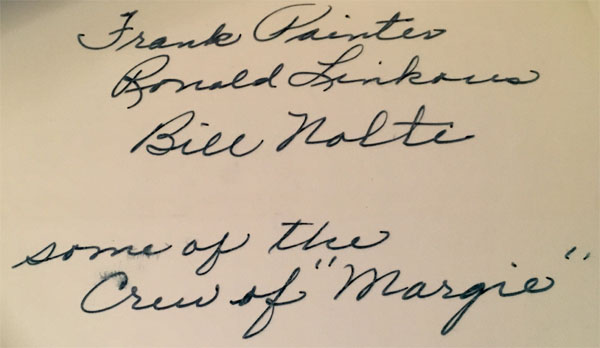 Frank Painter
Ronald Linkous
Bill Nolte
some of the
Crew of "Margie"